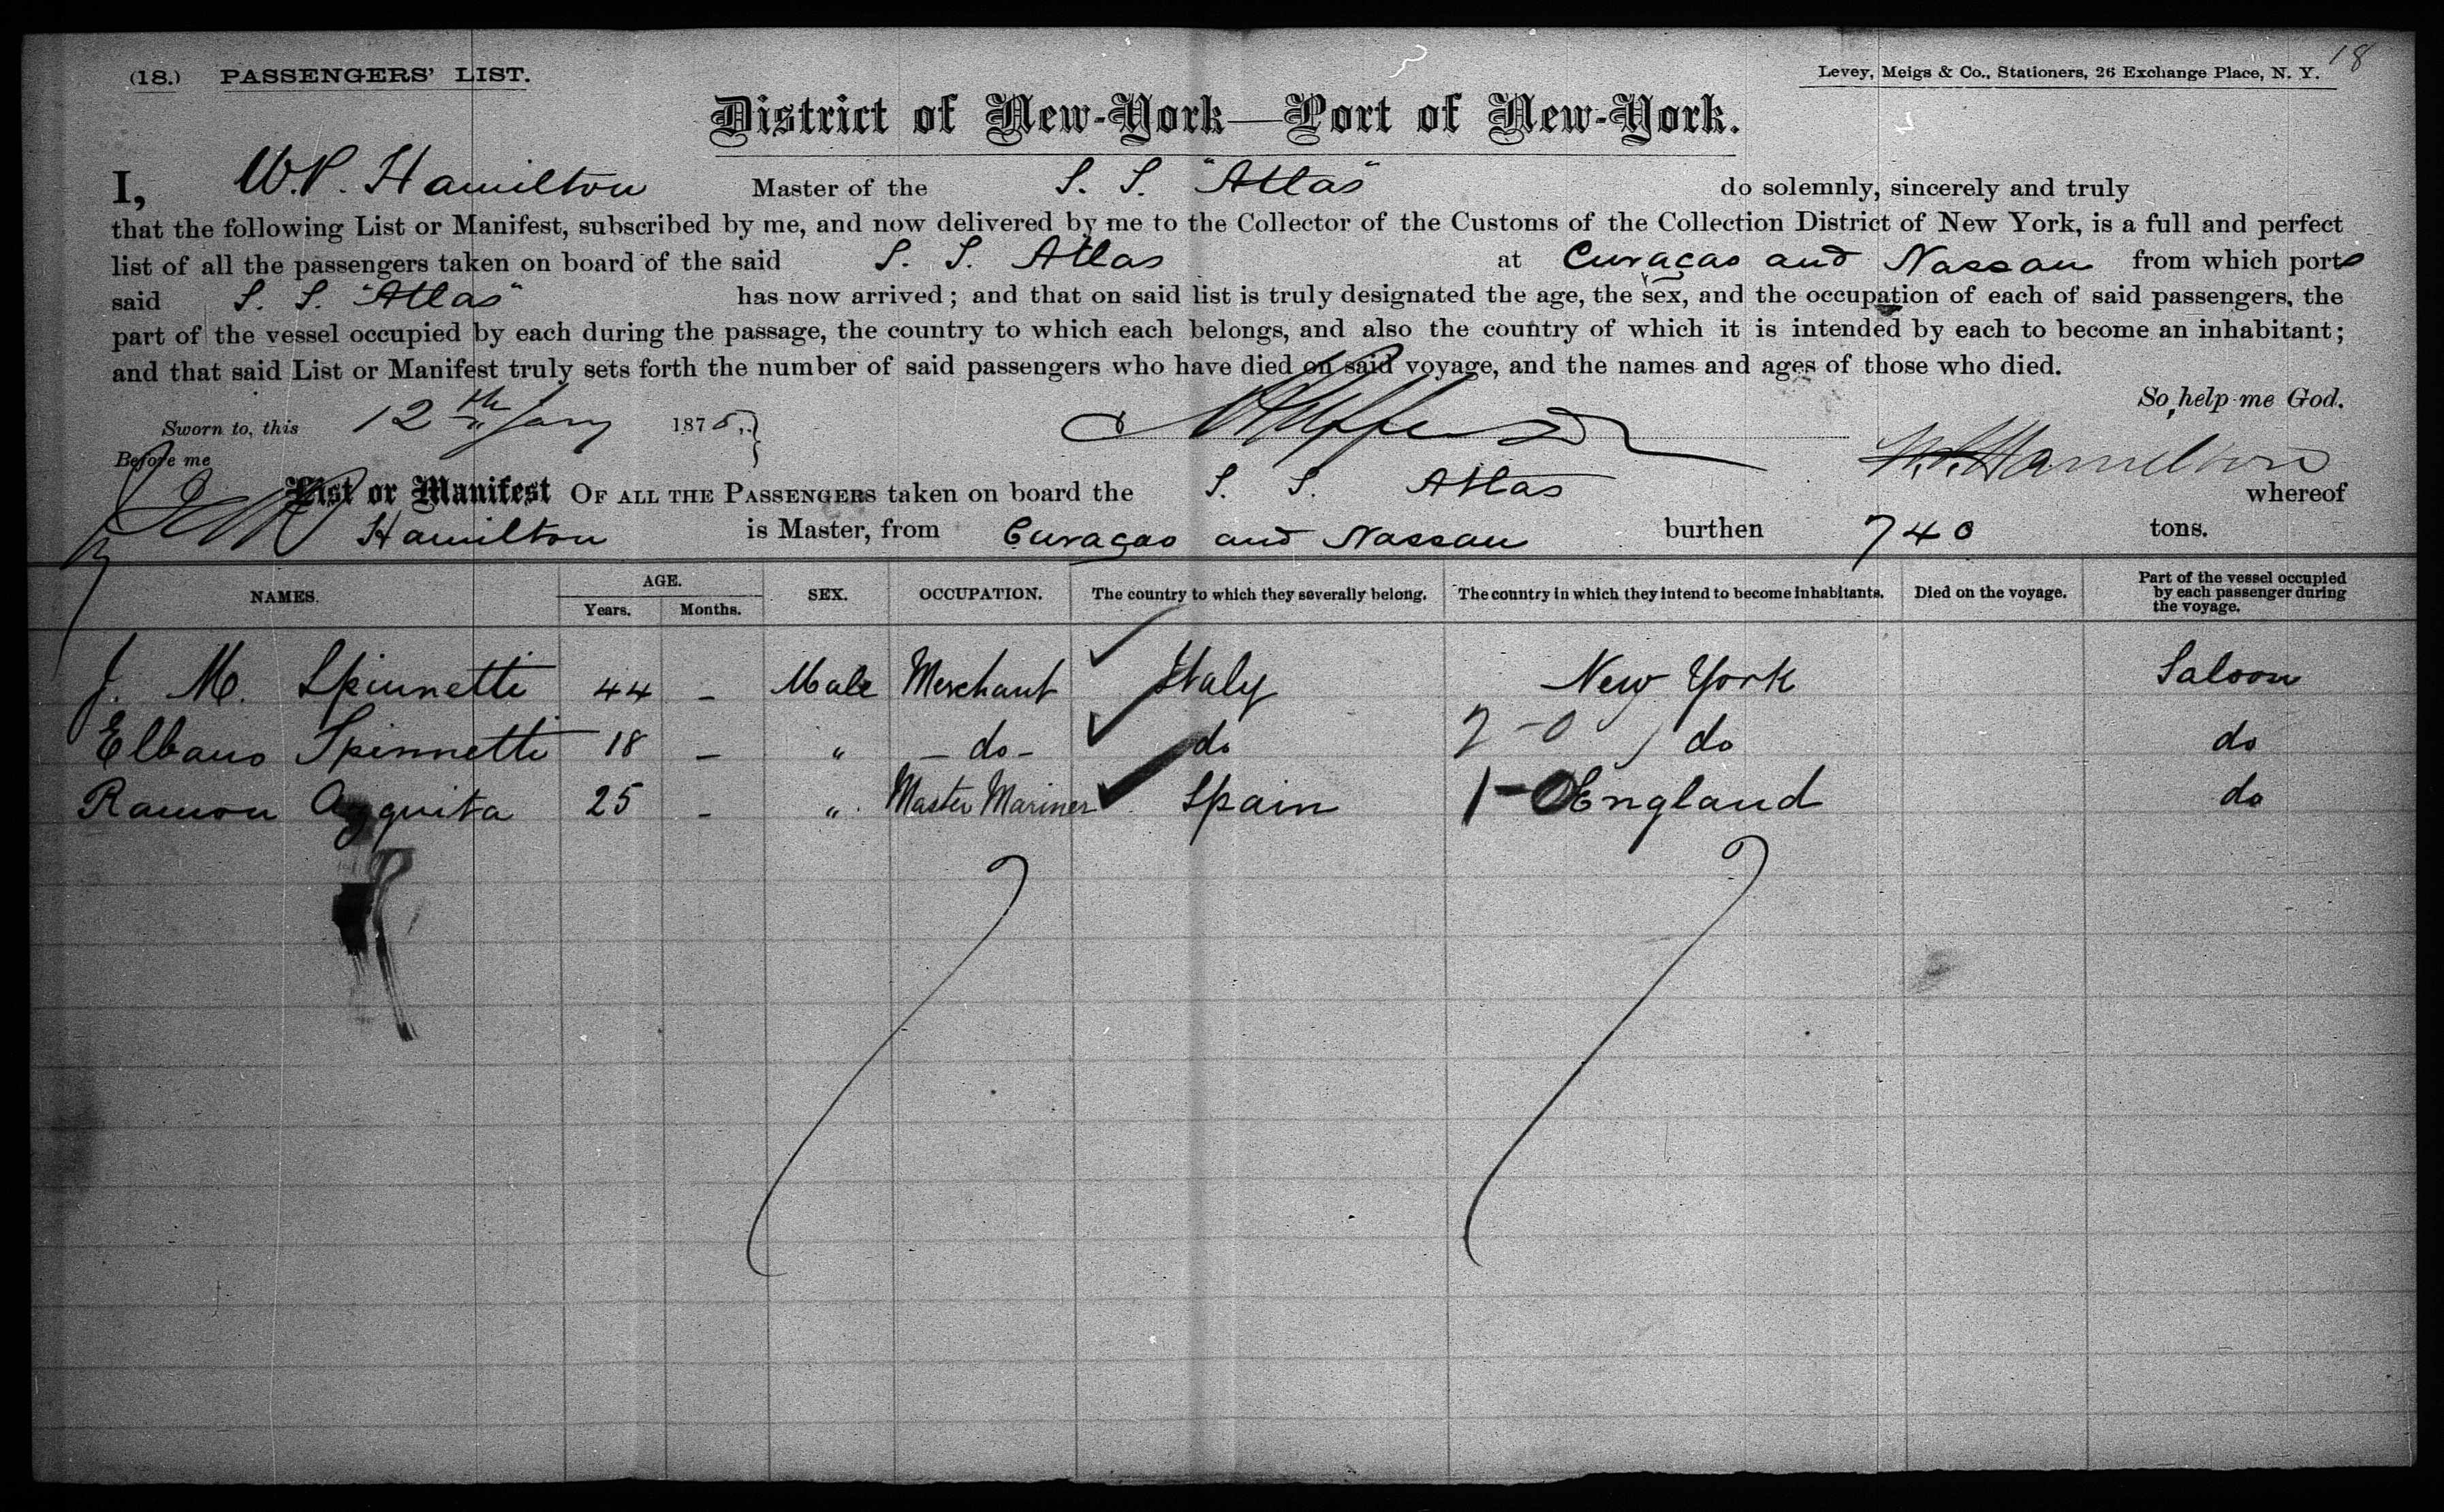 18
(18.) PASSENGERS' LIST. Levey, Meigs & Co., Stationers, 26 Exchange Place, N. Y.
District of New-York—Port of New-York.
I, W.P. Hamilton Master of the S. S. "Atlas" do solemnly, sincerely and truly
that the following List or Manifest, subscribed by me, and now delivered by me to the Collector of the Customs of the Collection District of New York, is a full and perfect
list of all the passengers taken on board of the said S. S. Atlas at Curaçao and Nassau from which ports
said S. S. "Atlas" has now arrived; and that on said list is truly designated the age, the sex, and the occupation of each of said passengers, the
part of the vessel occupied by each during the passage, the country to which each belongs, and also the country of which it is intended by each to become an inhabitant;
and that said List or Manifest truly sets forth the number of said passengers who have died on said voyage, and the names and ages of those who died.
So help me God.
Sworn to, this 12th Jany 1875.
Before me W.P. Hamilton
List or Manifest OF ALL THE PASSENGERS taken on board the S. S. Atlas whereof
Hamilton is Master, from Curaçao and Nassau burthen 740 tons.
NAMES. AGE. SEX. OCCUPATION. The country to which they severally belong. The country in which they intend to become inhabitants. Died on the voyage. Part of the vessel occupied by each passenger during the voyage.
Years. Months.
J. M. Spinnetti 44 - Male Merchant Italy New York Saloon
Elbano Spinnetti 18 - " - do - do 2-0 do do
Ramon 25 - " Master Mariner Spain 1-0 England do